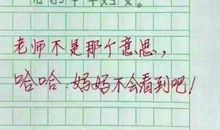 老师不是那个意思，
哈哈：妈妈不会看到吧！